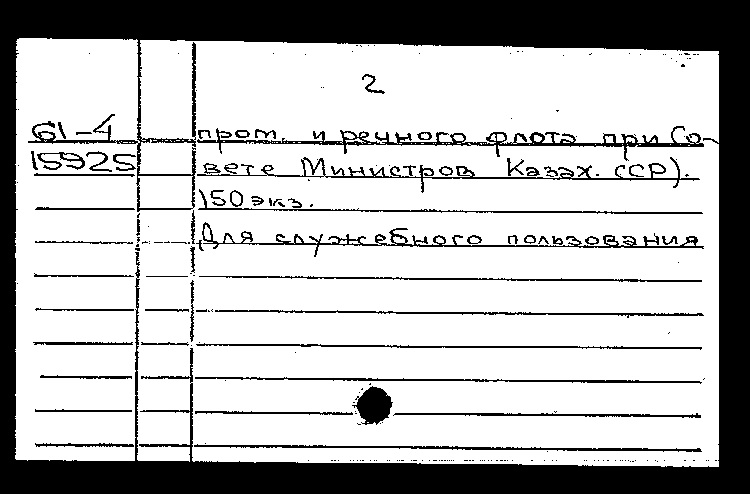 2
61-4 пром. и речного флота при Со-
15925 вете Министров Казах. ССР).
150 экз.
Для служебного пользования